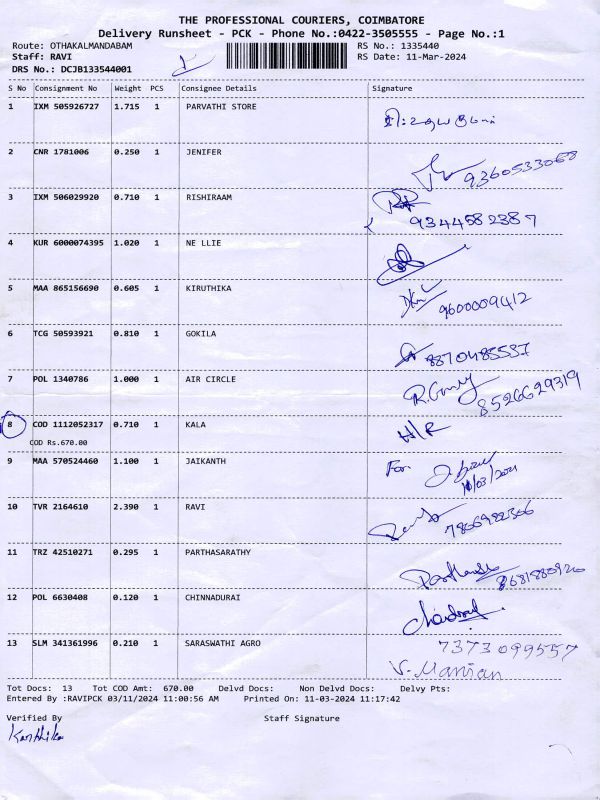 THE PROFESSIONAL COURIERS, COIMBATORE
Delivery Runsheet - PCK - Phone No.:0422-3505555 - Page No.:1
Route: OTHAKALMANDABAM RS No.: 1335440
Staff: RAVI RS Date: 11-Mar-2024
DRS No.: DCJB133544001
S No Consignment No Weight PCS Consignee Details Signature
1 IXM 505926727 1.715 1 PARVATHI STORE
2 CNR 1781006 0.250 1 JENIFER
9360533068
3 IXM 506029920 0.710 1 RISHIRAAM
9344582387
4 KUR 6000074395 1.020 1 NE LLIE
5 MAA 865156690 0.605 1 KIRUTHIKA
9600009412
6 TCG 50593921 0.810 1 GOKILA
8870485537
7 POL 1340786 1.000 1 AIR CIRCLE
8526629319
8 COD 1112052317 0.710 1 KALA H/R
COD Rs.670.00
9 MAA 570524460 1.100 1 JAIKANTH For
11/03/2024
10 TVR 2164610 2.390 1 RAVI
7866982306
11 TRZ 42510271 0.295 1 PARTHASARATHY
8681880920
12 POL 6630408 0.120 1 CHINNADURAI
13 SLM 341361996 0.210 1 SARASWATHI AGRO 7373099557
V. Manian
Tot Docs: 13 Tot COD Amt: 670.00 Delvd Docs: Non Delvd Docs: Delvy Pts:
Entered By :RAVIPCK 03/11/2024 11:00:56 AM Printed On: 11-03-2024 11:17:42
Verified By Staff Signature
Karthika